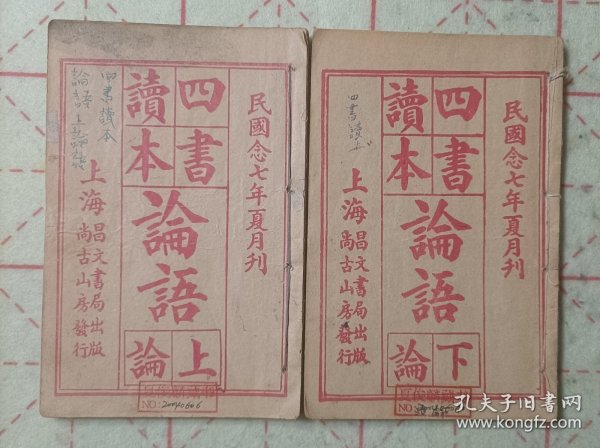 民國念七年夏月刊
四書
讀本
論語
上論
上海
昌文書局出版
尚古山房發行
四書讀本
NO: 20040606
民國念七年夏月刊
四書
讀本
論語
下論
上海
昌文書局出版
尚古山房發行
NO:
孔夫子旧书网
www.kongfz.com